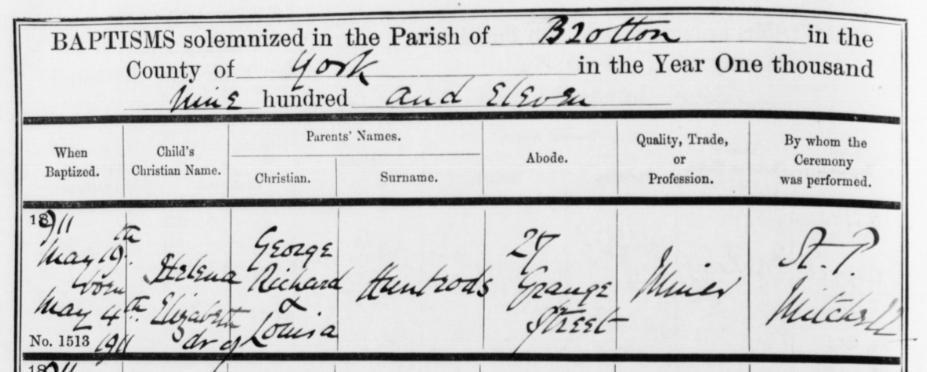 BAPTISMS solemnized in the Parish of Brotton in the
County of York in the Year One thousand
Nine hundred and Eleven
When Baptized.
Child's Christian Name.
Parents' Names.
Christian.
Surname.
Abode.
Quality, Trade, or Profession.
By whom the Ceremony was performed.
1911
May 19th
born
May 4th
1911
No. 1513
Helena
Elizabeth
dr of
George
Richard
&
Louisa
Huntrods
27
Grange
Street
Miner
St. P.
Mitchell